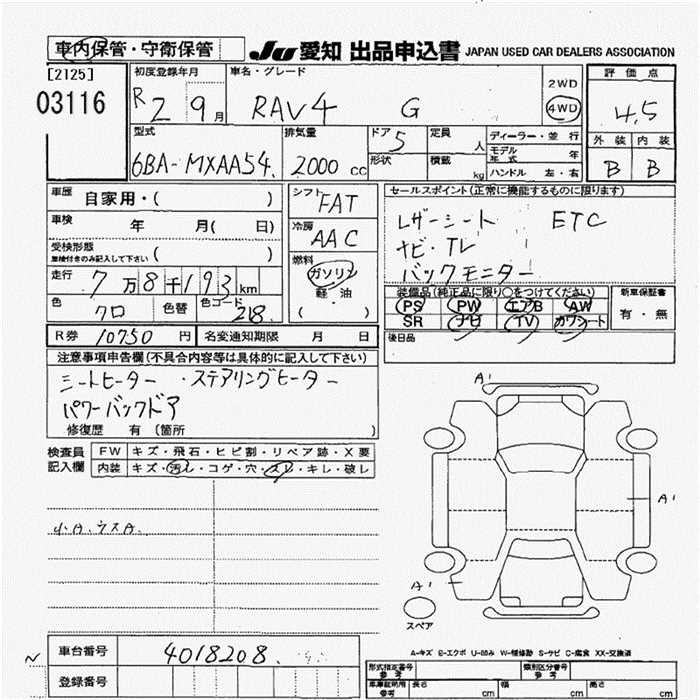 車内保管・守衛保管 JU 愛知 出品申込書 JAPAN USED CAR DEALERS ASSOCIATION
[2125] 初度登録年月 車名・グレード 評価点
03116 R2 9月 RAV4 G 2WD 4WD 4.5
型式 排気量 ドア 5 定員 人 ディーラー・並行 外装 内装
6BA-MXAA54. 2000cc 形状 積載 kg モデル年式 年 B B
ハンドル 左・右
車歴 自家用・( ) シフト FAT セールスポイント(正常に機能するものに限ります)
車検 年 月( 日) 冷房 AAC レザーシート ETC
受検形態 車検付きのみ記入して下さい ( ) 燃料 ナビ・TV
走行 7万8千193km ガソリン バックモニター
色 クロ 色替 色コード 218. 軽油 ( ・ ) 装備品(純正品に限り○をつけてください) 新車保証書
PS PW エアB AW 有・無
SR ナビ TV カワシート
R券 10750円 名変通知期限 月 日 後日品
注意事項申告欄(不具合内容等は具体的に記入して下さい)
シートヒーター ・ステアリングヒーター
パワーバックドア
修復歴 有 (箇所 )
A1
検査員記入欄 FW キズ・飛石・ヒビ割・リペア跡・X要
内装 キズ・汚レ・コゲ・穴・スレ・キレ・破レ
A1
小A.ウスA.
A1
スペア
A-キズ E-エクボ U-凹み W-補修跡 S-サビ C-腐食 XX-交換済
車台番号 4018208.
登録番号
形式指定番号 参考 類別区分番号 参考
車庫証明用 参考 長さ cm 幅 cm 高さ cm